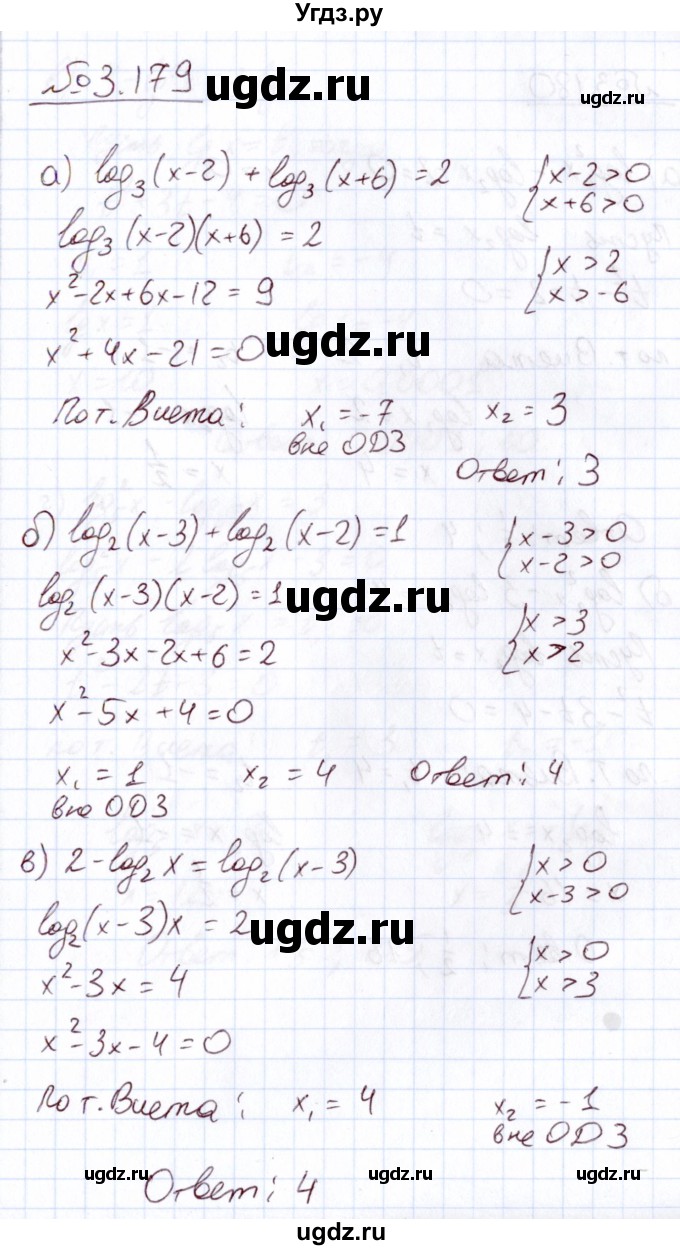 Угдз.ру
№3.179
ugdz.ru
ugdz.ru
а) log₃(x-2) + log₃(x+6) = 2 {x-2>0
{x+6>0
log₃(x-2)(x+6) = 2
{x>2
{x>-6
x²-2x+6x-12=9
ugdz.ru
x²+4x-21=0
По т. Виета: x₁=-7 x₂=3
вне ОДЗ
Ответ: 3
б) log₂(x-3)+log₂(x-2)=1 {x-3>0
{x-2>0
log₂(x-3)(x-2)=1
ugdz.ru
{x>3
{x>2
x²-3x-2x+6=2
x²-5x+4=0
x₁=1 x₂=4 Ответ: 4
вне ОДЗ
в) 2-log₂x=log₂(x-3) {x>0
{x-3>0
log₂(x-3)x=2
ugdz.ru
{x>0
{x>3
x²-3x=4
x²-3x-4=0
По т. Виета: x₁=4 x₂=-1
вне ОДЗ
ugdz.ru
ugdz.ru
Ответ: 4
ugdz.ru